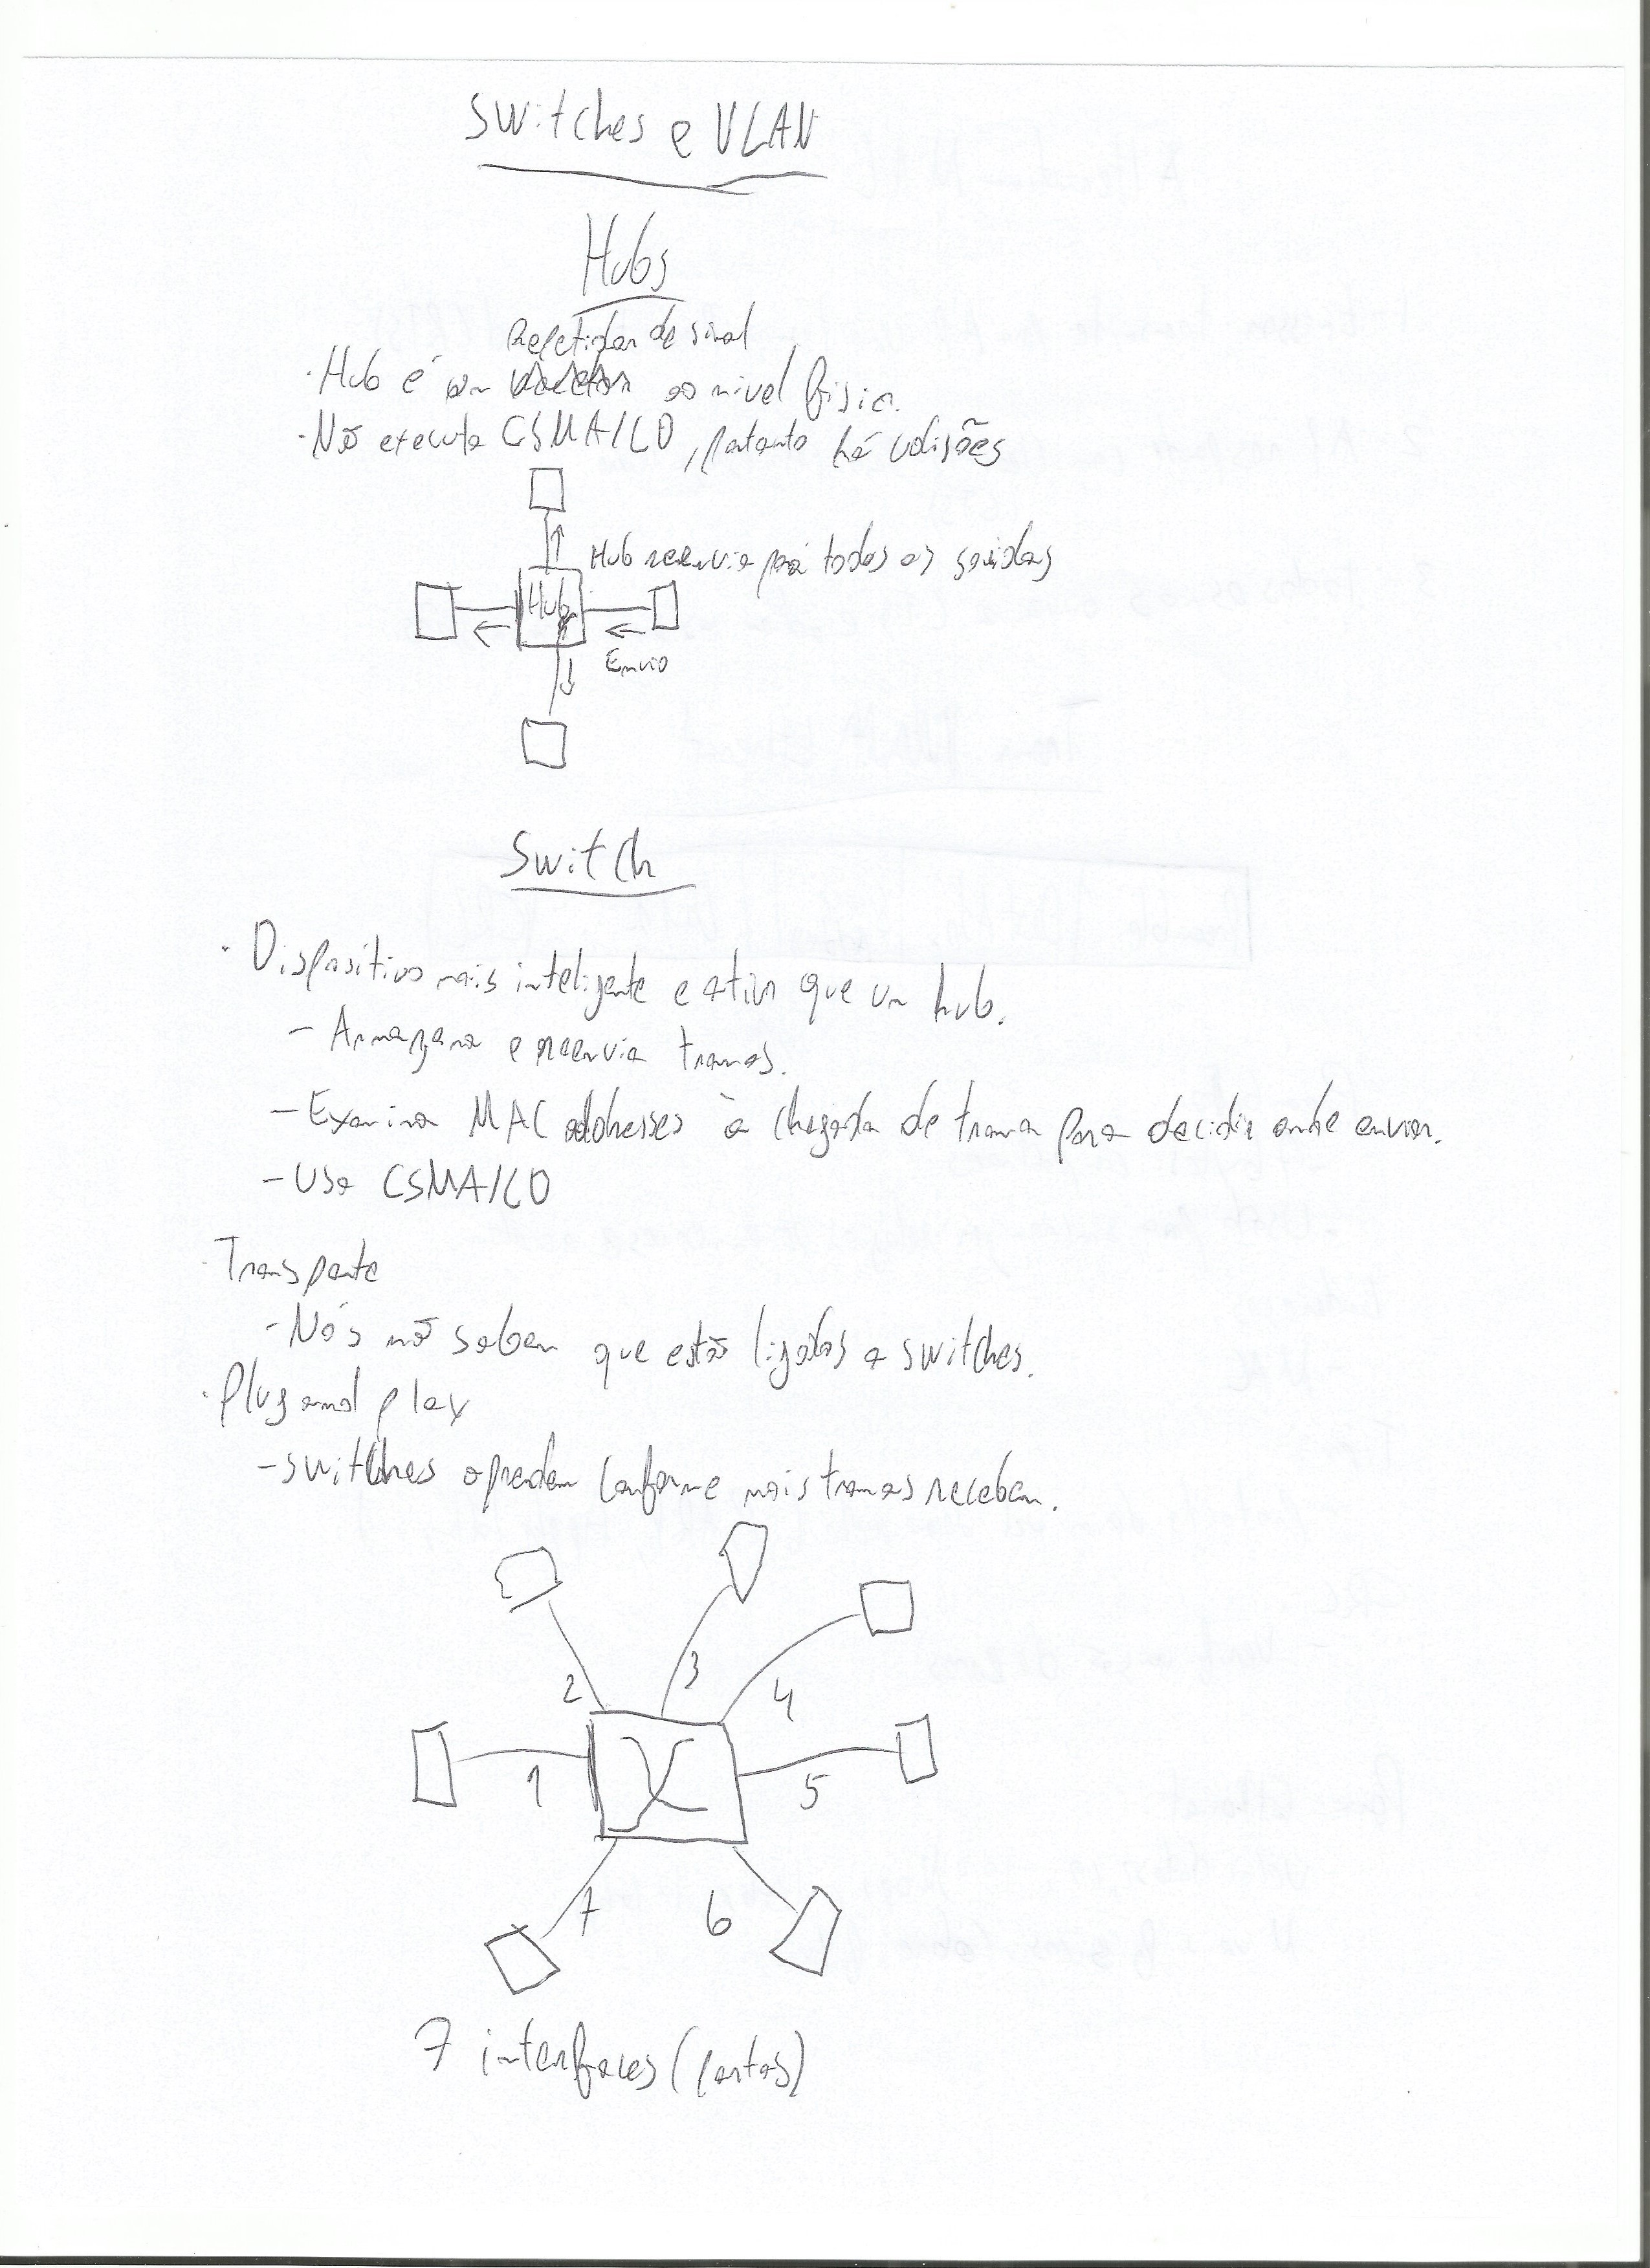 Switches e VLAN
Hubs
Repetidor de sinal
· Hub é um ao nível físico.
· Não executa CSMA/CD, portanto há colisões
Hub reenvia para todas as saídas
Hub
Envio
Switch
· Dispositivo mais inteligente e ativo que um hub.
- Armazena e reenvia tramas.
- Examina MAC addresses à chegada de trama para decidir onde enviar.
- Usa CSMA/CD
· Transparente
- Nós não sabem que estão ligados a switches.
· Plug and play
- switches aprendem conforme mais tramas recebem.
2 3 4
1 5
7 6
7 interfaces (portas)